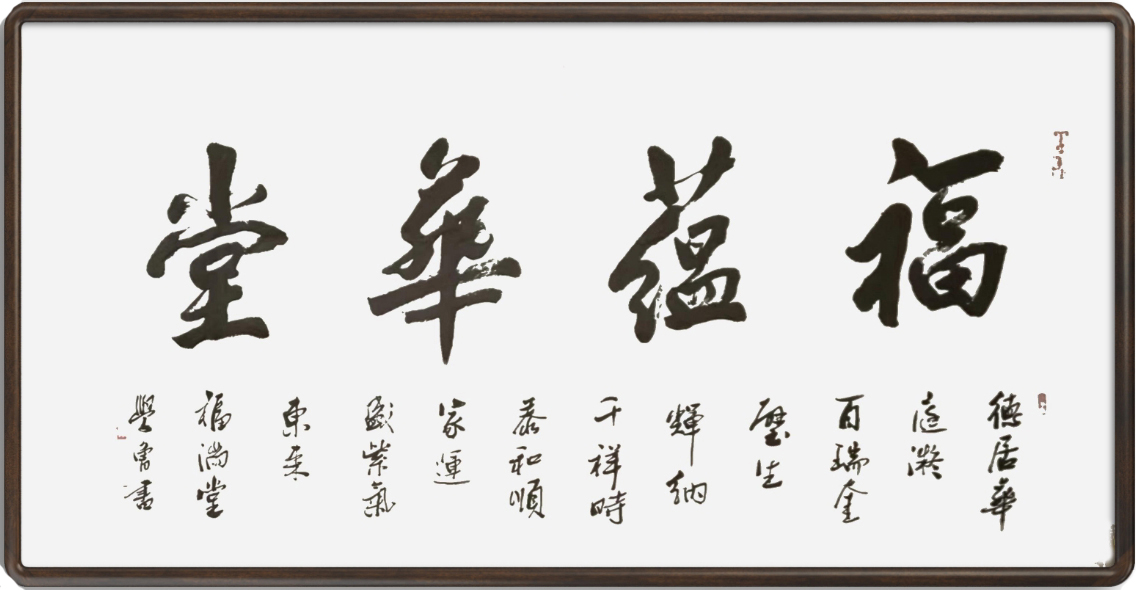 福蘊華堂
德居華
庭凝
百瑞金
壁生
輝納
千祥時
泰和順
家運
盛紫氣
東來
福滿堂
學書